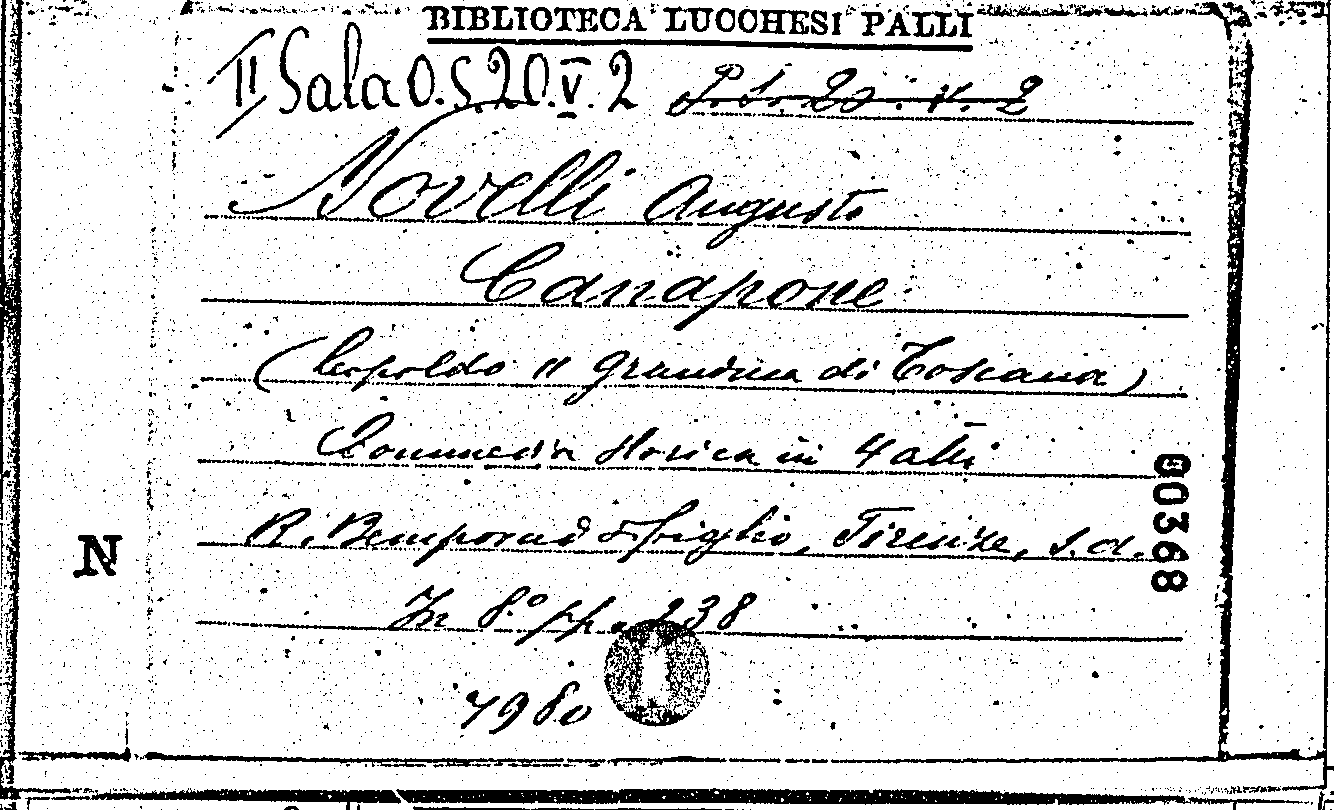 BIBLIOTECA LUCCHESI PALLI
II Sala O.S.20.V.2 P.S. 20. V. 2
Novelli Augusto
Canapone
(Leopoldo II granduca di Toscana)
Commedia storica in 4 atti
R. Bemporad & figlio, Firenze, s.d.
In 8.° pp. 238
7980
N
00368